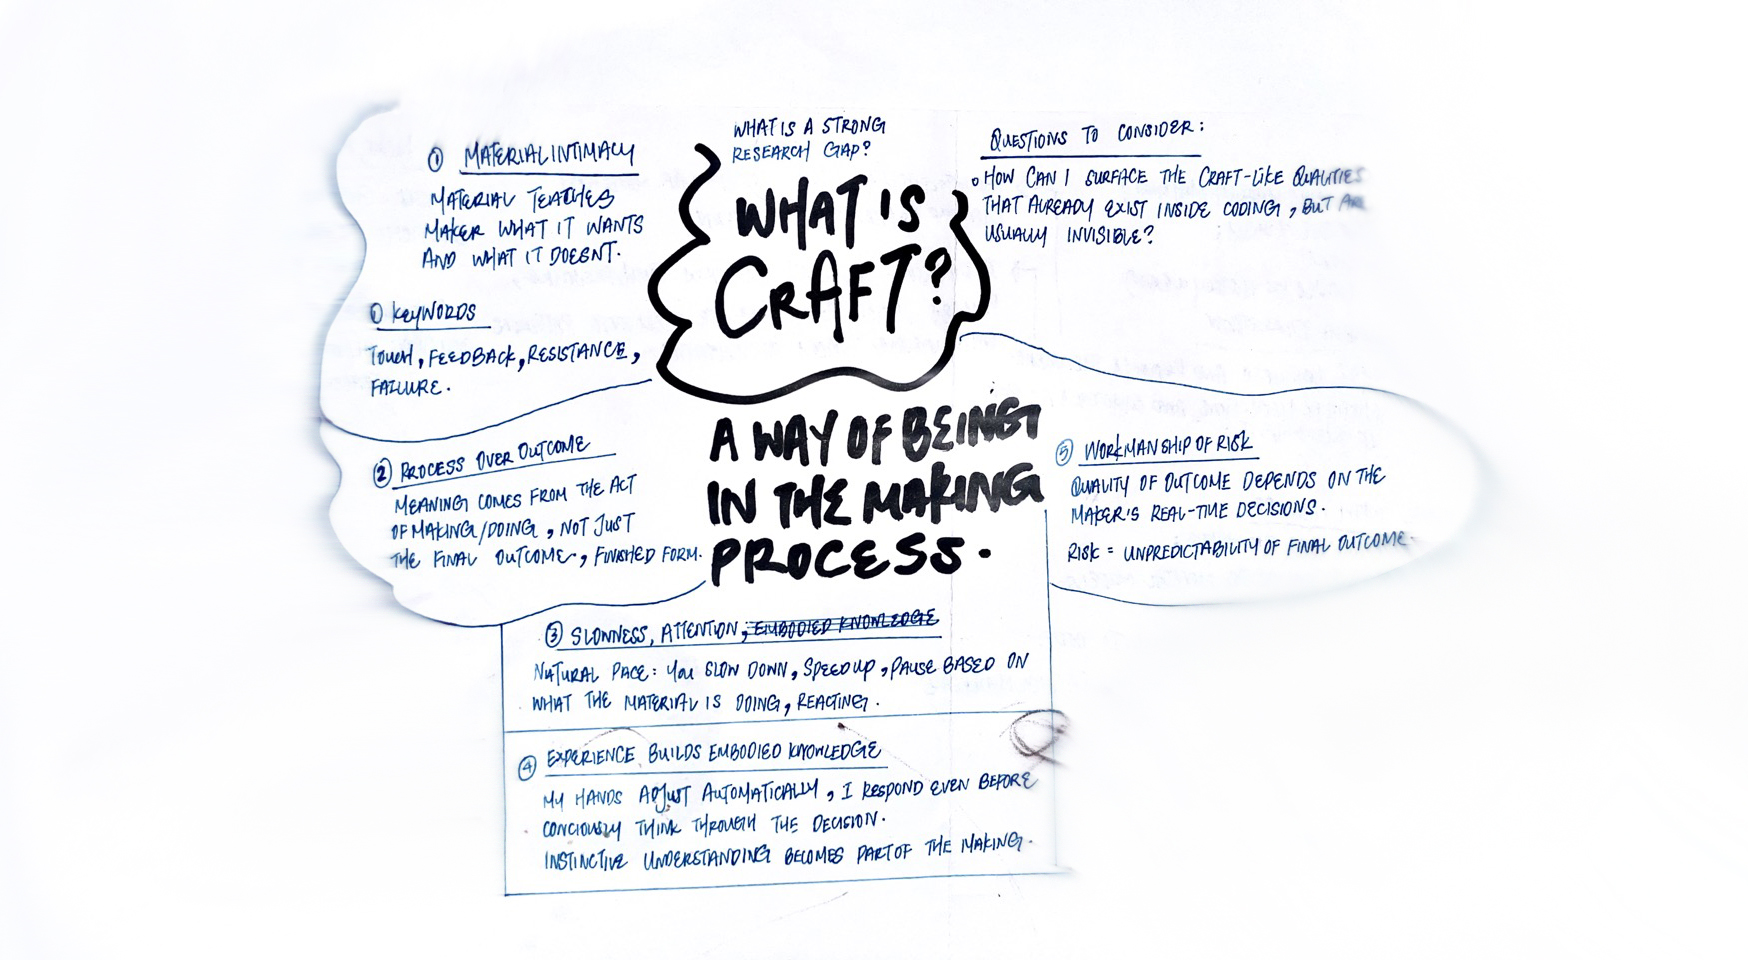 WHAT IS A STRONG
RESEARCH GAP?
WHAT IS
CRAFT?
A WAY OF BEING
IN THE MAKING
PROCESS.
① MATERIAL INTIMACY
MATERIAL TEACHES
MAKER WHAT IT WANTS
AND WHAT IT DOESNT.
① KEYWORDS
TOUCH, FEEDBACK, RESISTANCE,
FAILURE.
② PROCESS OVER OUTCOME
MEANING COMES FROM THE ACT
OF MAKING/DOING, NOT JUST
THE FINAL OUTCOME, FINISHED FORM.
③ SLOWNESS, ATTENTION, EMBODIED KNOWLEDGE
NATURAL PACE: YOU SLOW DOWN, SPEED UP, PAUSE BASED ON
WHAT THE MATERIAL IS DOING, REACTING.
④ EXPERIENCE BUILDS EMBODIED KNOWLEDGE
MY HANDS ADJUST AUTOMATICALLY, I RESPOND EVEN BEFORE
CONCIOUSLY THINK THROUGH THE DECISION.
INSTINCTIVE UNDERSTANDING BECOMES PART OF THE MAKING.
QUESTIONS TO CONSIDER:
• HOW CAN I SURFACE THE CRAFT-LIKE QUALITIES
THAT ALREADY EXIST INSIDE CODING, BUT ARE
USUALLY INVISIBLE?
⑤ WORKMANSHIP OF RISK
QUALITY OF OUTCOME DEPENDS ON THE
MAKER'S REAL-TIME DECISIONS.
RISK = UNPREDICTABILITY OF FINAL OUTCOME.